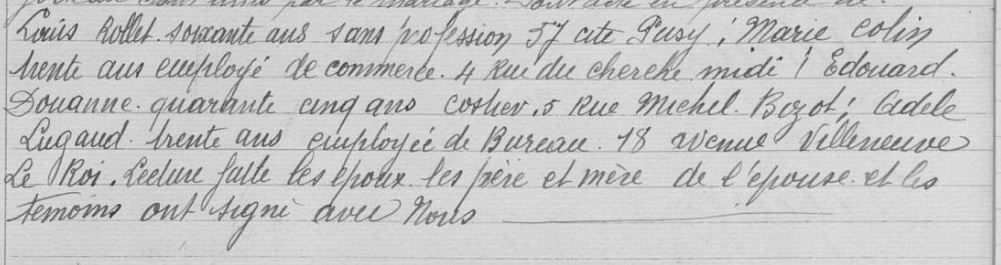 par le mariage. Dont acte en présence de
Louis Rollet. soixante ans sans profession 57 cite Pusy ; Marie Colin
trente ans employé de commerce. 4 Rue du cherche midi ; Edouard.
Douanne. quarante cinq ans cocher. 5 Rue Michel. Bizot ; Adele
Lugand. trente ans employée de Bureau. 18 avenue Villeneuve
Le Roi. Lecture faite les époux. les père et mère de l'épouse. et les
temoins ont signé avec Nous